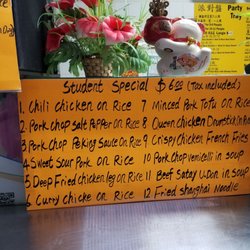 Student Special $6.00 (Tax included)
1. Chili chicken on Rice
2. Pork chop salt Pepper on Rice
3. Pork chop Peking Sauce on Rice
4. Sweet Sour Pork on Rice
5. Deep Fried chicken leg on Rice
6. Curry chicke on Rice
7 Minced Pork Tofu on Rice
8. Queen chicken Drumstick
9 Crispy Chicken French Fries
10 Pork chop vermicelli in soup
11 Beef Satay Udon in Soup
12 Fried Shanghai Noodle
Party
Tray